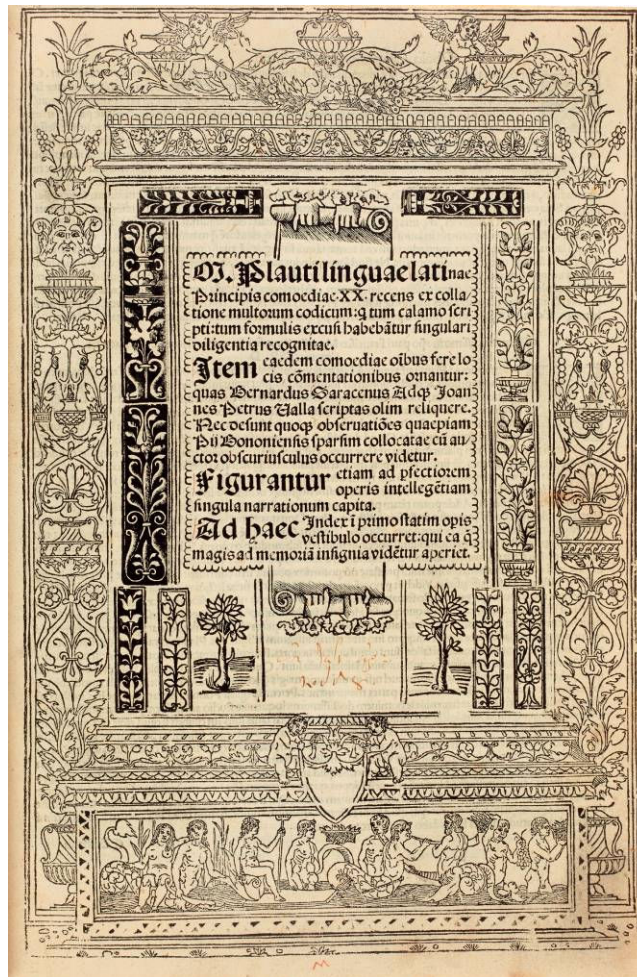 M. Plauti linguae latinae
Principis comoediae·XX·recens ex colla
tione multorum codicum: q̃ tum calamo scri
pti: tum formulis excusi habebãtur singulari
diligentia recognitae.
Item eaedem comoediae oĩbus fere lo
cis cõmentationibus ornantur:
quas Bernardus Saracenus Adqʒ Joan
nes Petrus Valla scriptas olim reliquere.
Nec desunt quoqʒ obseruatiões quaepiam
Pii Bononiensis sparsim collocatae cũ au
ctor obscuriusculus occurrere videtur.
Figurantur etiam ad pfectiorem
operis intellegẽtiam
singula narrationum capita.
Ad haec Index ĩ primo statim opis
vestibulo occurret: qui ea q̃
magis ad memoriã insignia vidẽtur aperiet.